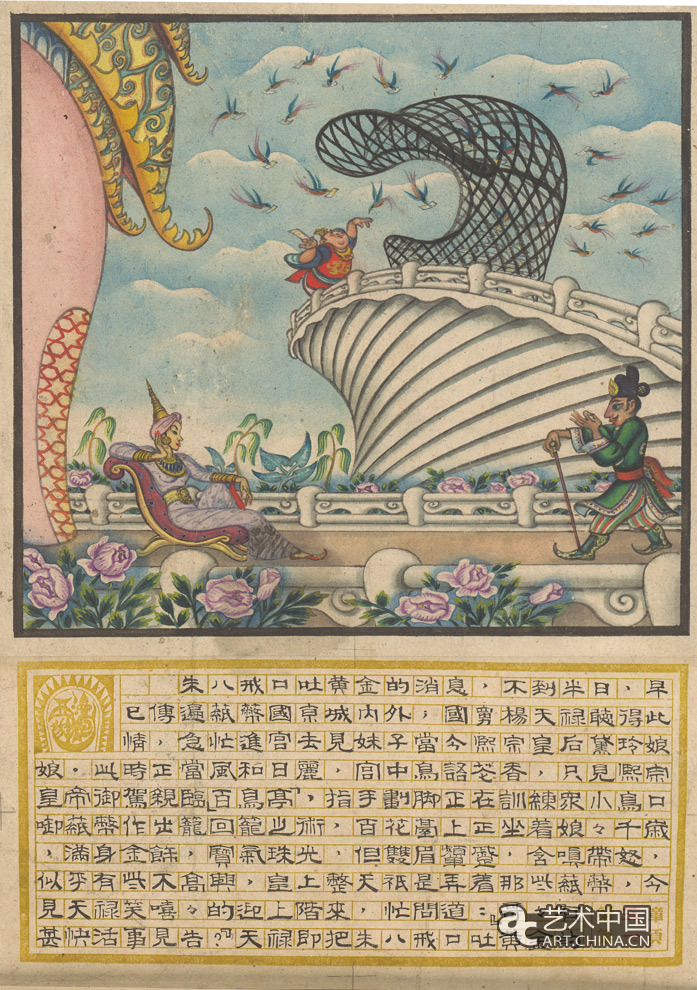 朱八戒口吐黄金的消息，不到半日，早
已傳遍紙幣國京城内外，國舅楊天禄聽得此
情，急忙進宮去見妹子當今熙宗皇后黛玲娘
娘。此時正當風和日麗，宮中鳥語花香，只見熙宗
皇帝御駕親臨百鳥亭，指手劃脚正在訓練衆小鳥口
啣紙幣作出籠回籠之術，百花臺上正坐着娘々千歲
，滿身金飾，寶氣珠光，但雙眉顰蹙，含嗔帶怒，
似乎有些不高興，皇上整天祇是弄着那些紙幣，今
見天禄笑嘻々的迎上階來，忙問道：
甚快活事見告？」天禄即把朱八戒口吐黄
艺术中国
ART.CHINA.CN